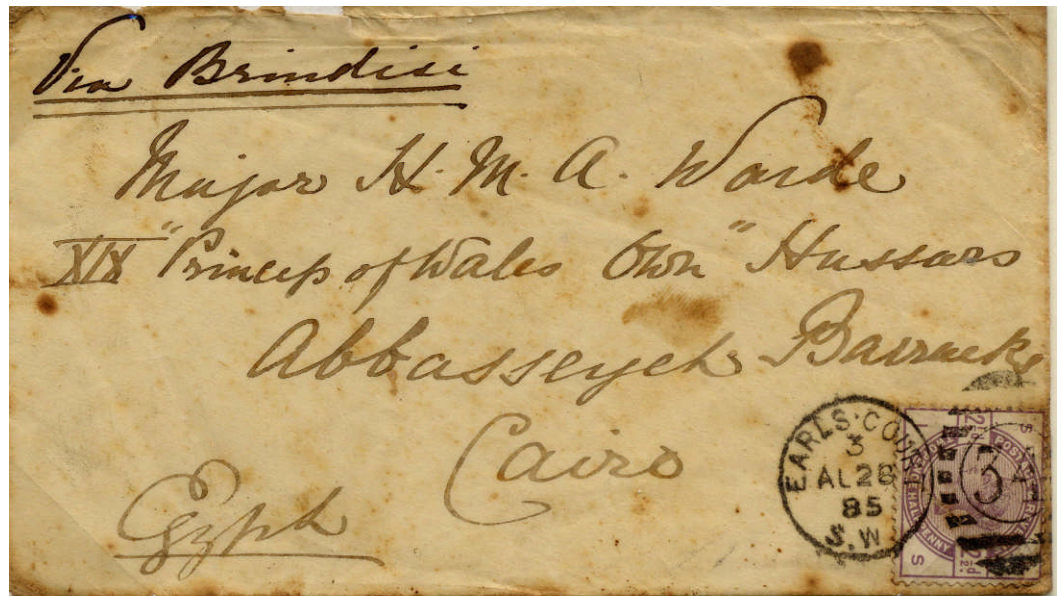 Via Brindisi
Major H. M. A. Warde
XIX "Princess of Wales Own" Hussars
Abbasseyeh Barracks
Cairo
Egypt
EARLS·COURT
3
AL 28
85
S.W
3
S
S